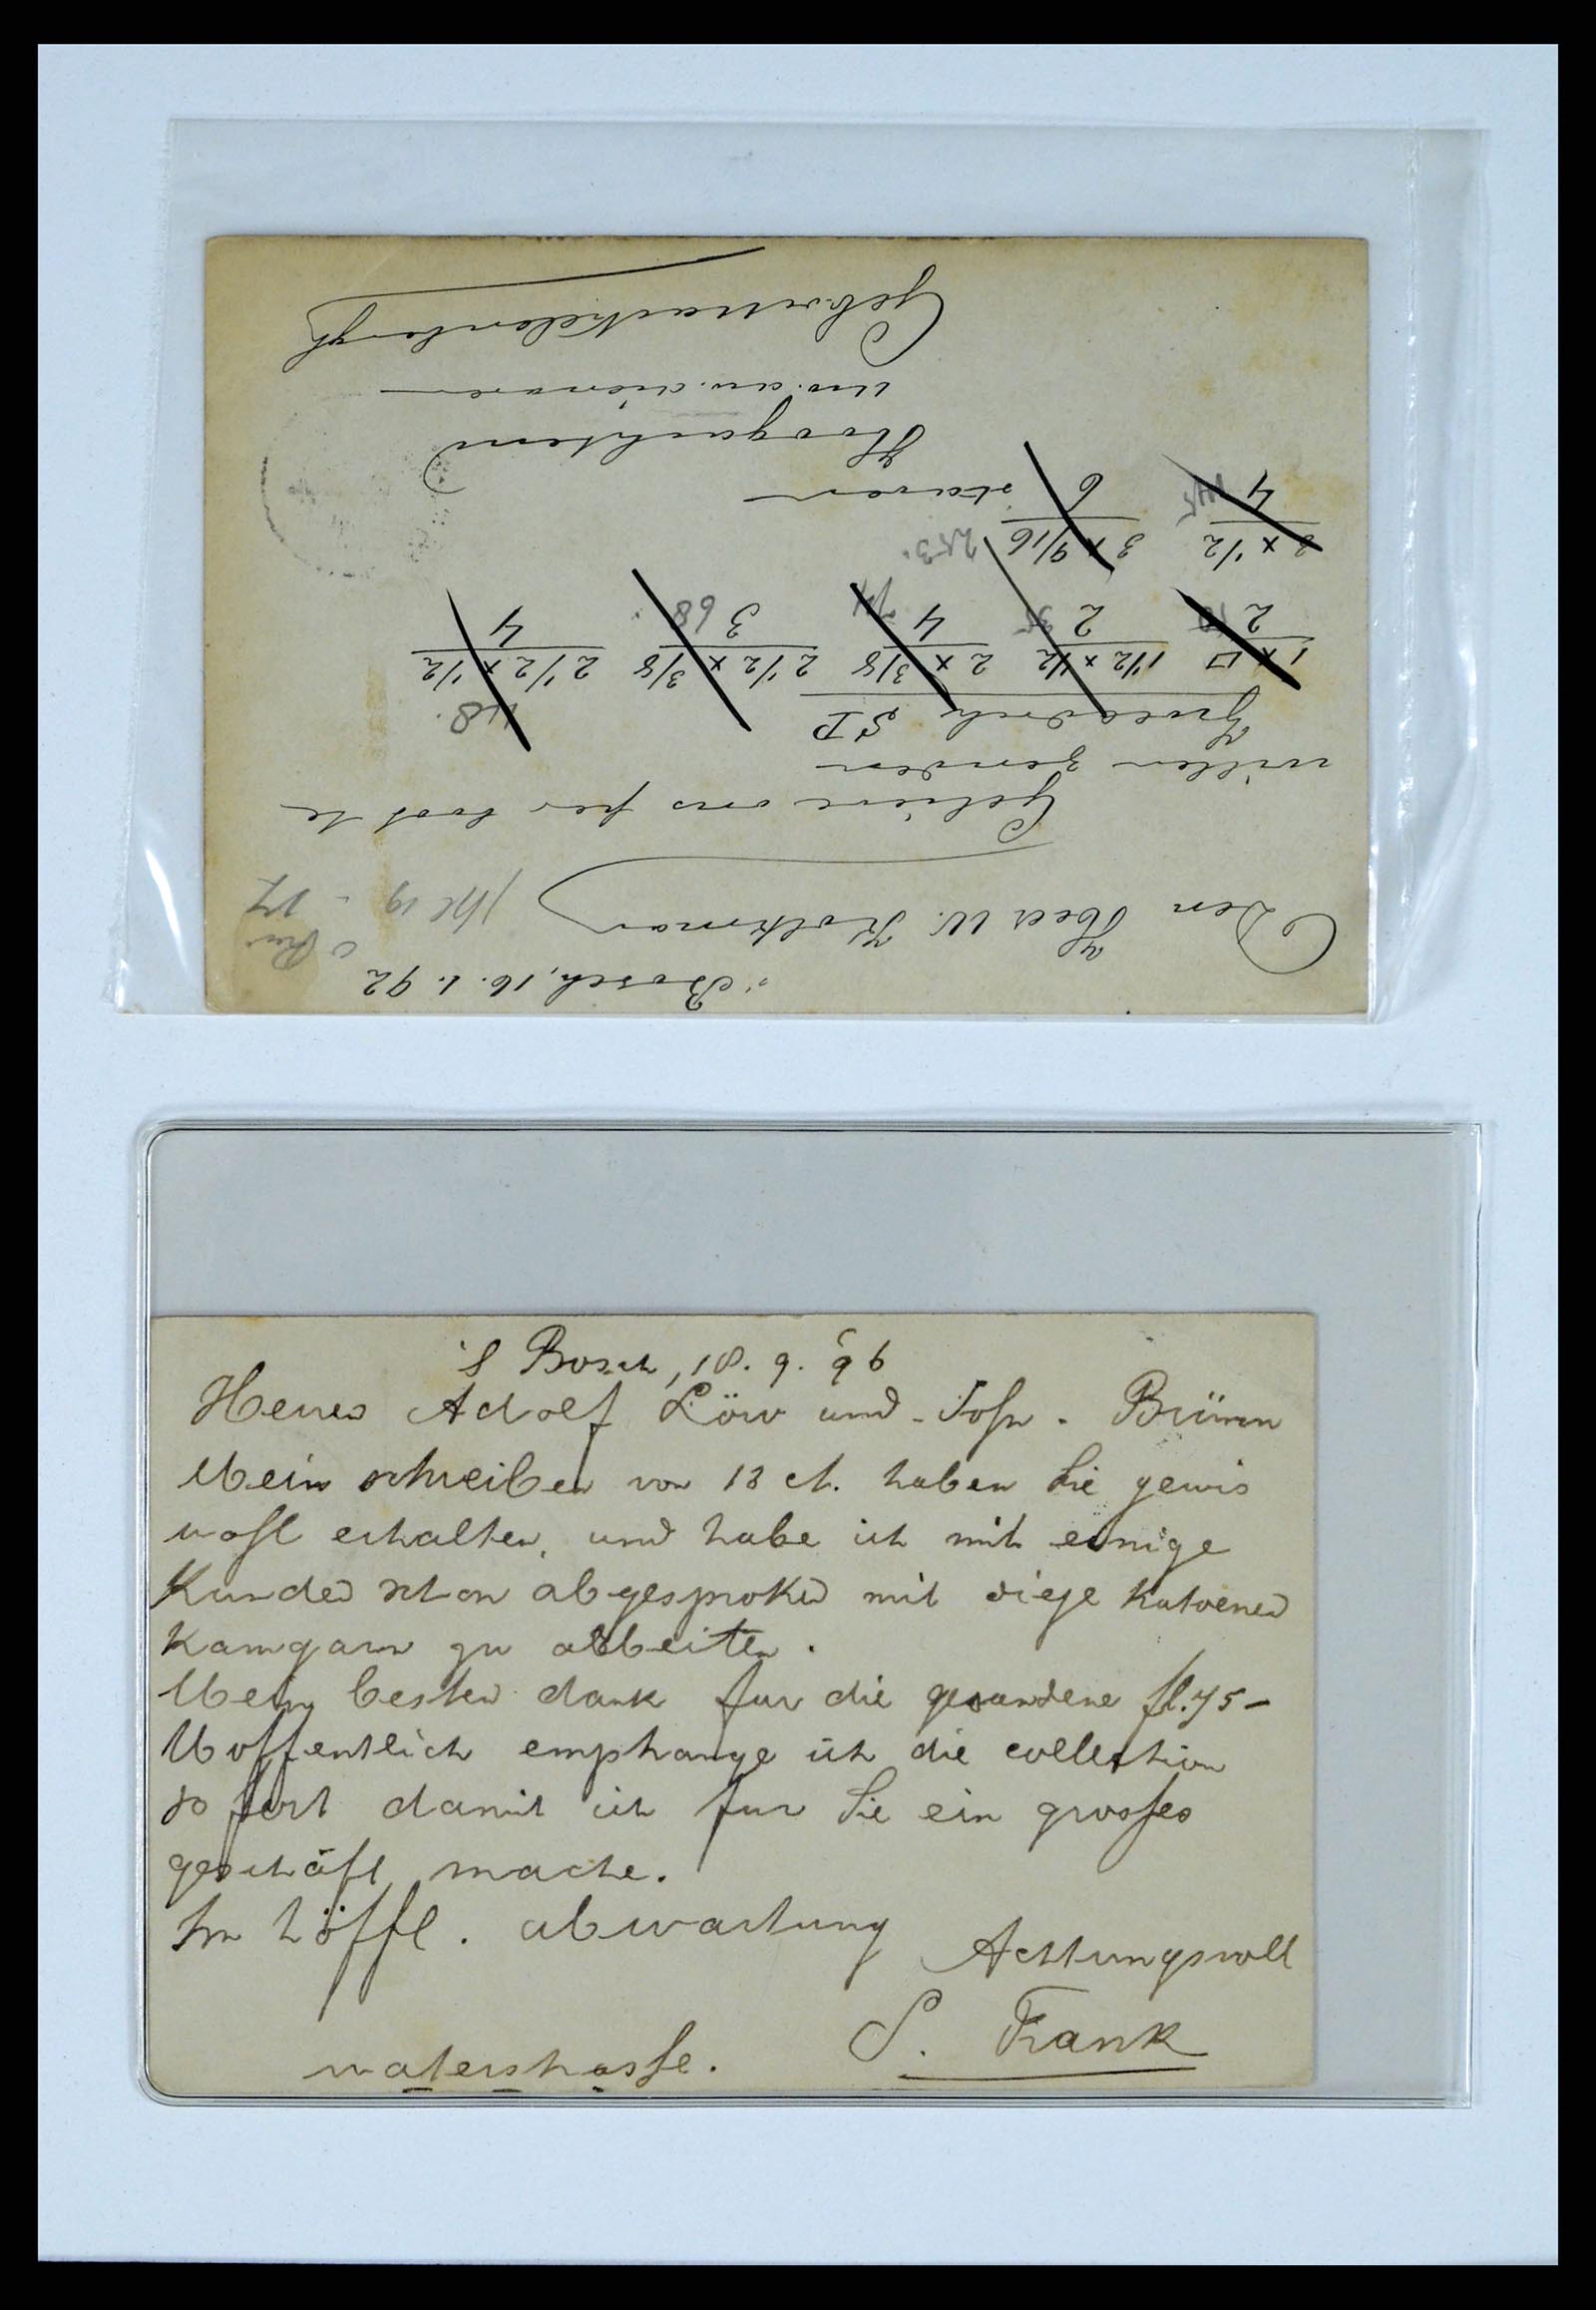 's Bosch, 16.1.92
Den Heer W. Holtman
Gelieve ons per boot te
willen zenden
1 x □ 1½ x ½ 2 x 3/8 2 1/2 x 3/8 2 1/2 x 1/2
2 2 4 3 4
68 48.
3 x 1/2 3 x 9/16
4 6 staven
253.
Hoogachtend
uw. dw. dienaren
's Bosch, 18. 9. 96
Herren Adolf Löw und Sohn. Brünn
Mein schreiben von 13 ct. haben Sie gewis
wohl erhalten, und habe ich mit einige
Kunden schon abgesproken mit diese Katoenen
Kamgarn zu arbeiten.
Mein besten dank fur die gesandene fl.45-
Hoffentlich emphange ich die collection
so fort damit ich fur Sie ein grosses
geschäft mache.
Im höffl. abwartung
Achtungsvoll
S. Frank
waterstrasse.